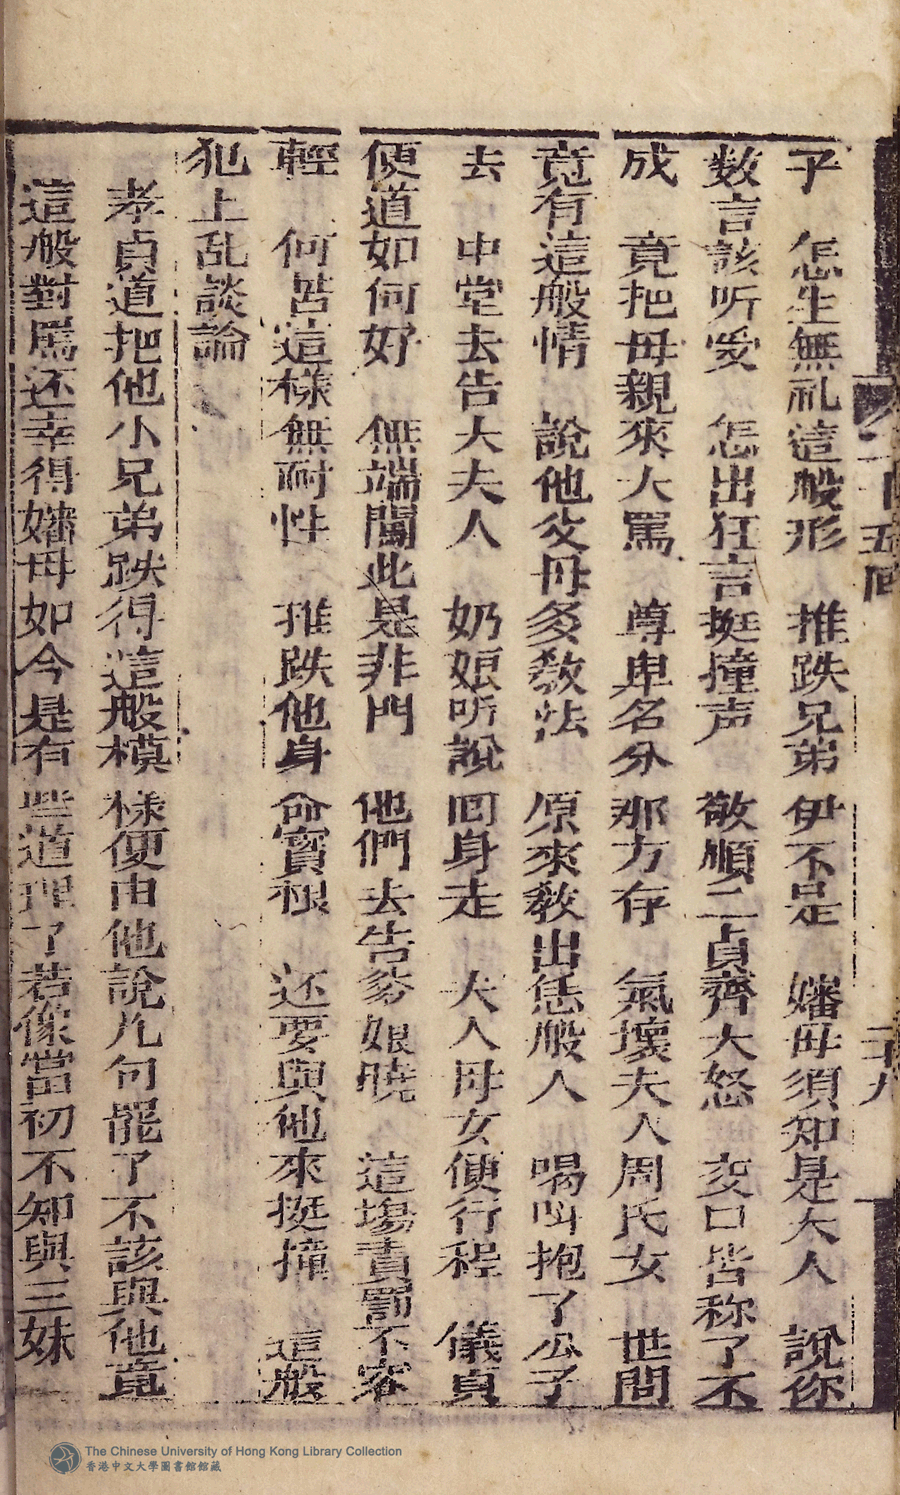 子　怎生無礼這般形　推跌兄弟伊不是　嬸母須知是大人　說你
数言該听爱　怎出狂言挺撞声　敬順二貞齊大怒　交口皆称了不
成　竟把母親來大罵　尊卑名分那方存　氣壞夫人周氏女　世間
竟有這般情　說他父母多教法　原來教出恁般人　喝叫抱了公子
去　中堂去告大夫人　奶娘听說回身走　大人母女便行程　儀貞
便道如何好　無端閙此是非門　他們去告爹娘曉　這塲責罰不容
輕　何苦這樣無耐性　推跌他身命實根　还要與他來挺撞　這般
犯上乱談論
孝貞道把他小兄弟跌得這般模樣便由他說几句罷了不該與他竟
這般對罵还幸得嬸母如今是有些道理了若像當初不知與三妹
二十五回
二十九
The Chinese University of Hong Kong Library Collection
香港中文大學圖書館館藏